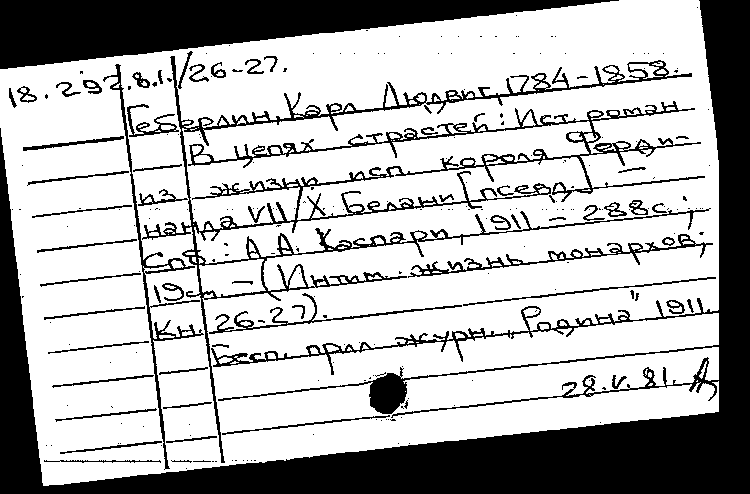 18.292.8.1./26-27.
Геберлин, Карл Людвиг, 1784-1858.
В цепях страстей: Ист. роман
из жизни исп. короля Ферди-
нанда VII/Х. Белани [псевд.]. —
Спб.: А.А. Каспари, 1911. – 288с.;
19см. – (Интим. жизнь монархов;
Кн. 26-27).
Бесп. прил. журн. „Родина" 1911.
28.V.81.